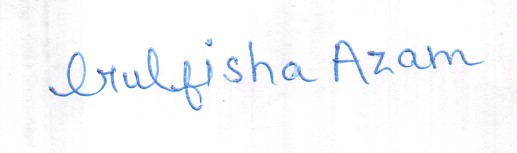 Gulfisha Azam